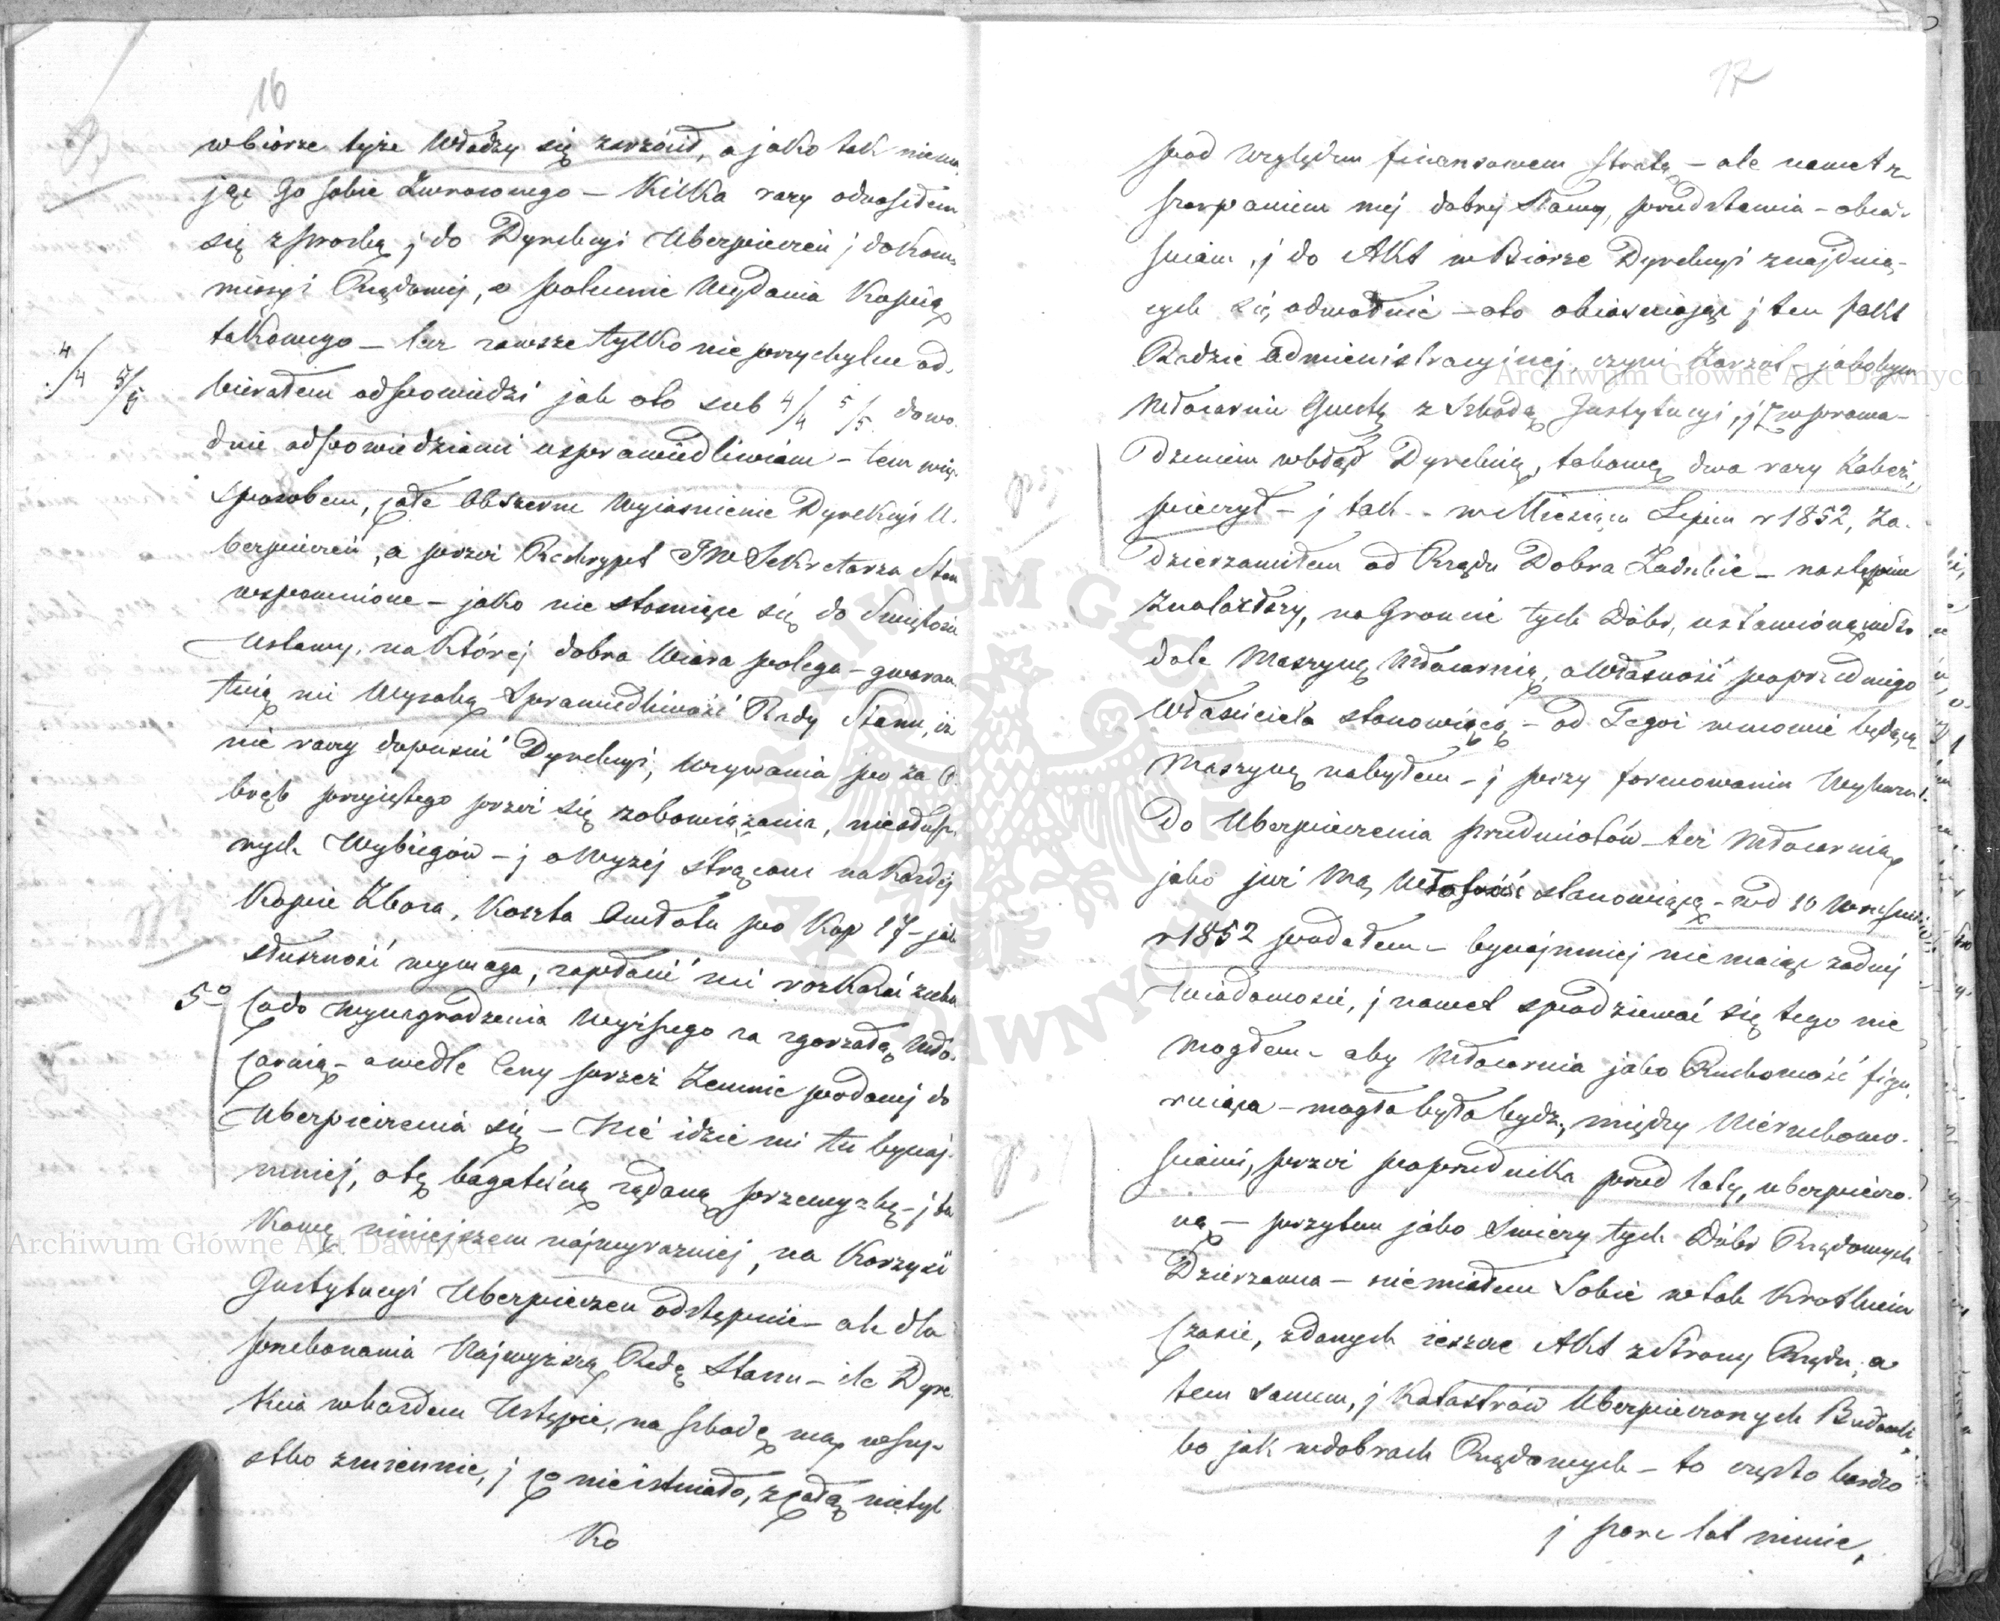 16
w biórze tyże Władzy się zarzóił, a jako tak niema,
jąc go sobie Zwroconego – Kilka razy odnosiłem
się z prozbą j do Dyrekcyi Ubespieczeń j do Kom,
missyi Rządowej, o polecenie Wydania Kopią
takowego – lecz zawsze tylko nie przychylne od,
bierałem odpowiedzi jak oto sub 4/4 5/5 dowo,
4/4 5/5
dnie odpowiedziami usprawiedliwiam – tem więc
sposobem, całe Obszerne Wyiasnienie Dyrekcyi U,
bespieczeń, a przez Reskrypt JW Sekretarza Stanu
wspomnione – jako nie stosuiące się do Swiętosci
Ustawy, na Której dobra Wiara polega – gwaran,
tuią mi Wysoką Sprawiedliwość Rady Stanu, iż
nie raczy dopuscić Dyrekcyi, Używania po za O,
bręb przyiętego przez się zobowiązania, niesłusz,
nych Wybiegów – j o Wyżej strącone na Każdej
Kopie Zboża, Koszta Omłotu po Kop 17 – jak
słuszność wymaga, zapłacić mi rozkazać zechce
5o Co do wynagrodzenia Wyższego za zgorzałą Mło,
carnią – a wedle Ceny przez Zemnie podanej do
Ubespieczenia się – Nie idzie mi tu bynaj,
mniej, o tę bagatelną żądaną przewyzkę – j ta
Kową niniejszem najwyrazniej, na Korzyść
Instytucyi Ubespieczen odstępuie – ale dla
przekonania Najwyższą Radę Stanu – ile Dyre,
Kcia w każdem Ustępie, na szkodę mą wszy,
stko zmiennie, j co nie istniało, z całą nietyl
Ko
17
pod względem finansowem stratą – ale nawet z
szarpaniem mej dobrej Sławy, przedstawia – obia,
sniam, j do Akt w Biórze Dyrekcyi znajduią,
cych się odwołuię – oto obiasniając j ten fakt
Radzie Administracyjnej, czyni Zarzut – jakobym
Młocarnie Gniotą z Szkodą Instytucyi, j z wprowa,
dzeniem w błąd Dyrekcią, takową dwa razy Zabez,
pieczył – j tak – w Miesiącu Lipcu r 1852, Za,
dzierzawiłem od Rządu Dobra Zadybie – następnie
Znalazłszy, na Groncie tych Dóbr, ustawioną w Sto
dole Maszynę Młocarnią, a Własność poprzedniego
Właściciela stanowiącą – od Tegoż w mowie będącą
Maszynę nabyłem – j przy formowaniu Wykazu
do Ubespieczenia przedmiotów – też Młocarnią
jako już Mą Własność stanowiącą – pod 10 Wrzesnia
r 1852 podałem – bynajmniej nie maiąc żadnej
Wiadomosci, j nawet spodziewać się tego nie
mogłem – aby Młocarnia jako Ruchomość figu,
ruiąca – mogła była bydz, między Nieruchomo,
sciami, przez poprzednika przed laty, ubespieczo,
ną – przytem jako Swieży tych Dóbr Rządowych
Dzierzawca – nie miałem Sobie w tak Krótkim
Czasie, zdanych ieszcze Akt z Strony Rządu, a
tem samem, j Katastrów Ubespieczonych Budowli,
bo jak w dobrach Rządowych – to często bardzo
j pare lat minie,
Archiwum Główne Akt Dawnych
Archiwum Główne Akt Dawnych
ARCHIWUM GŁÓWNE AKT DAWNYCH